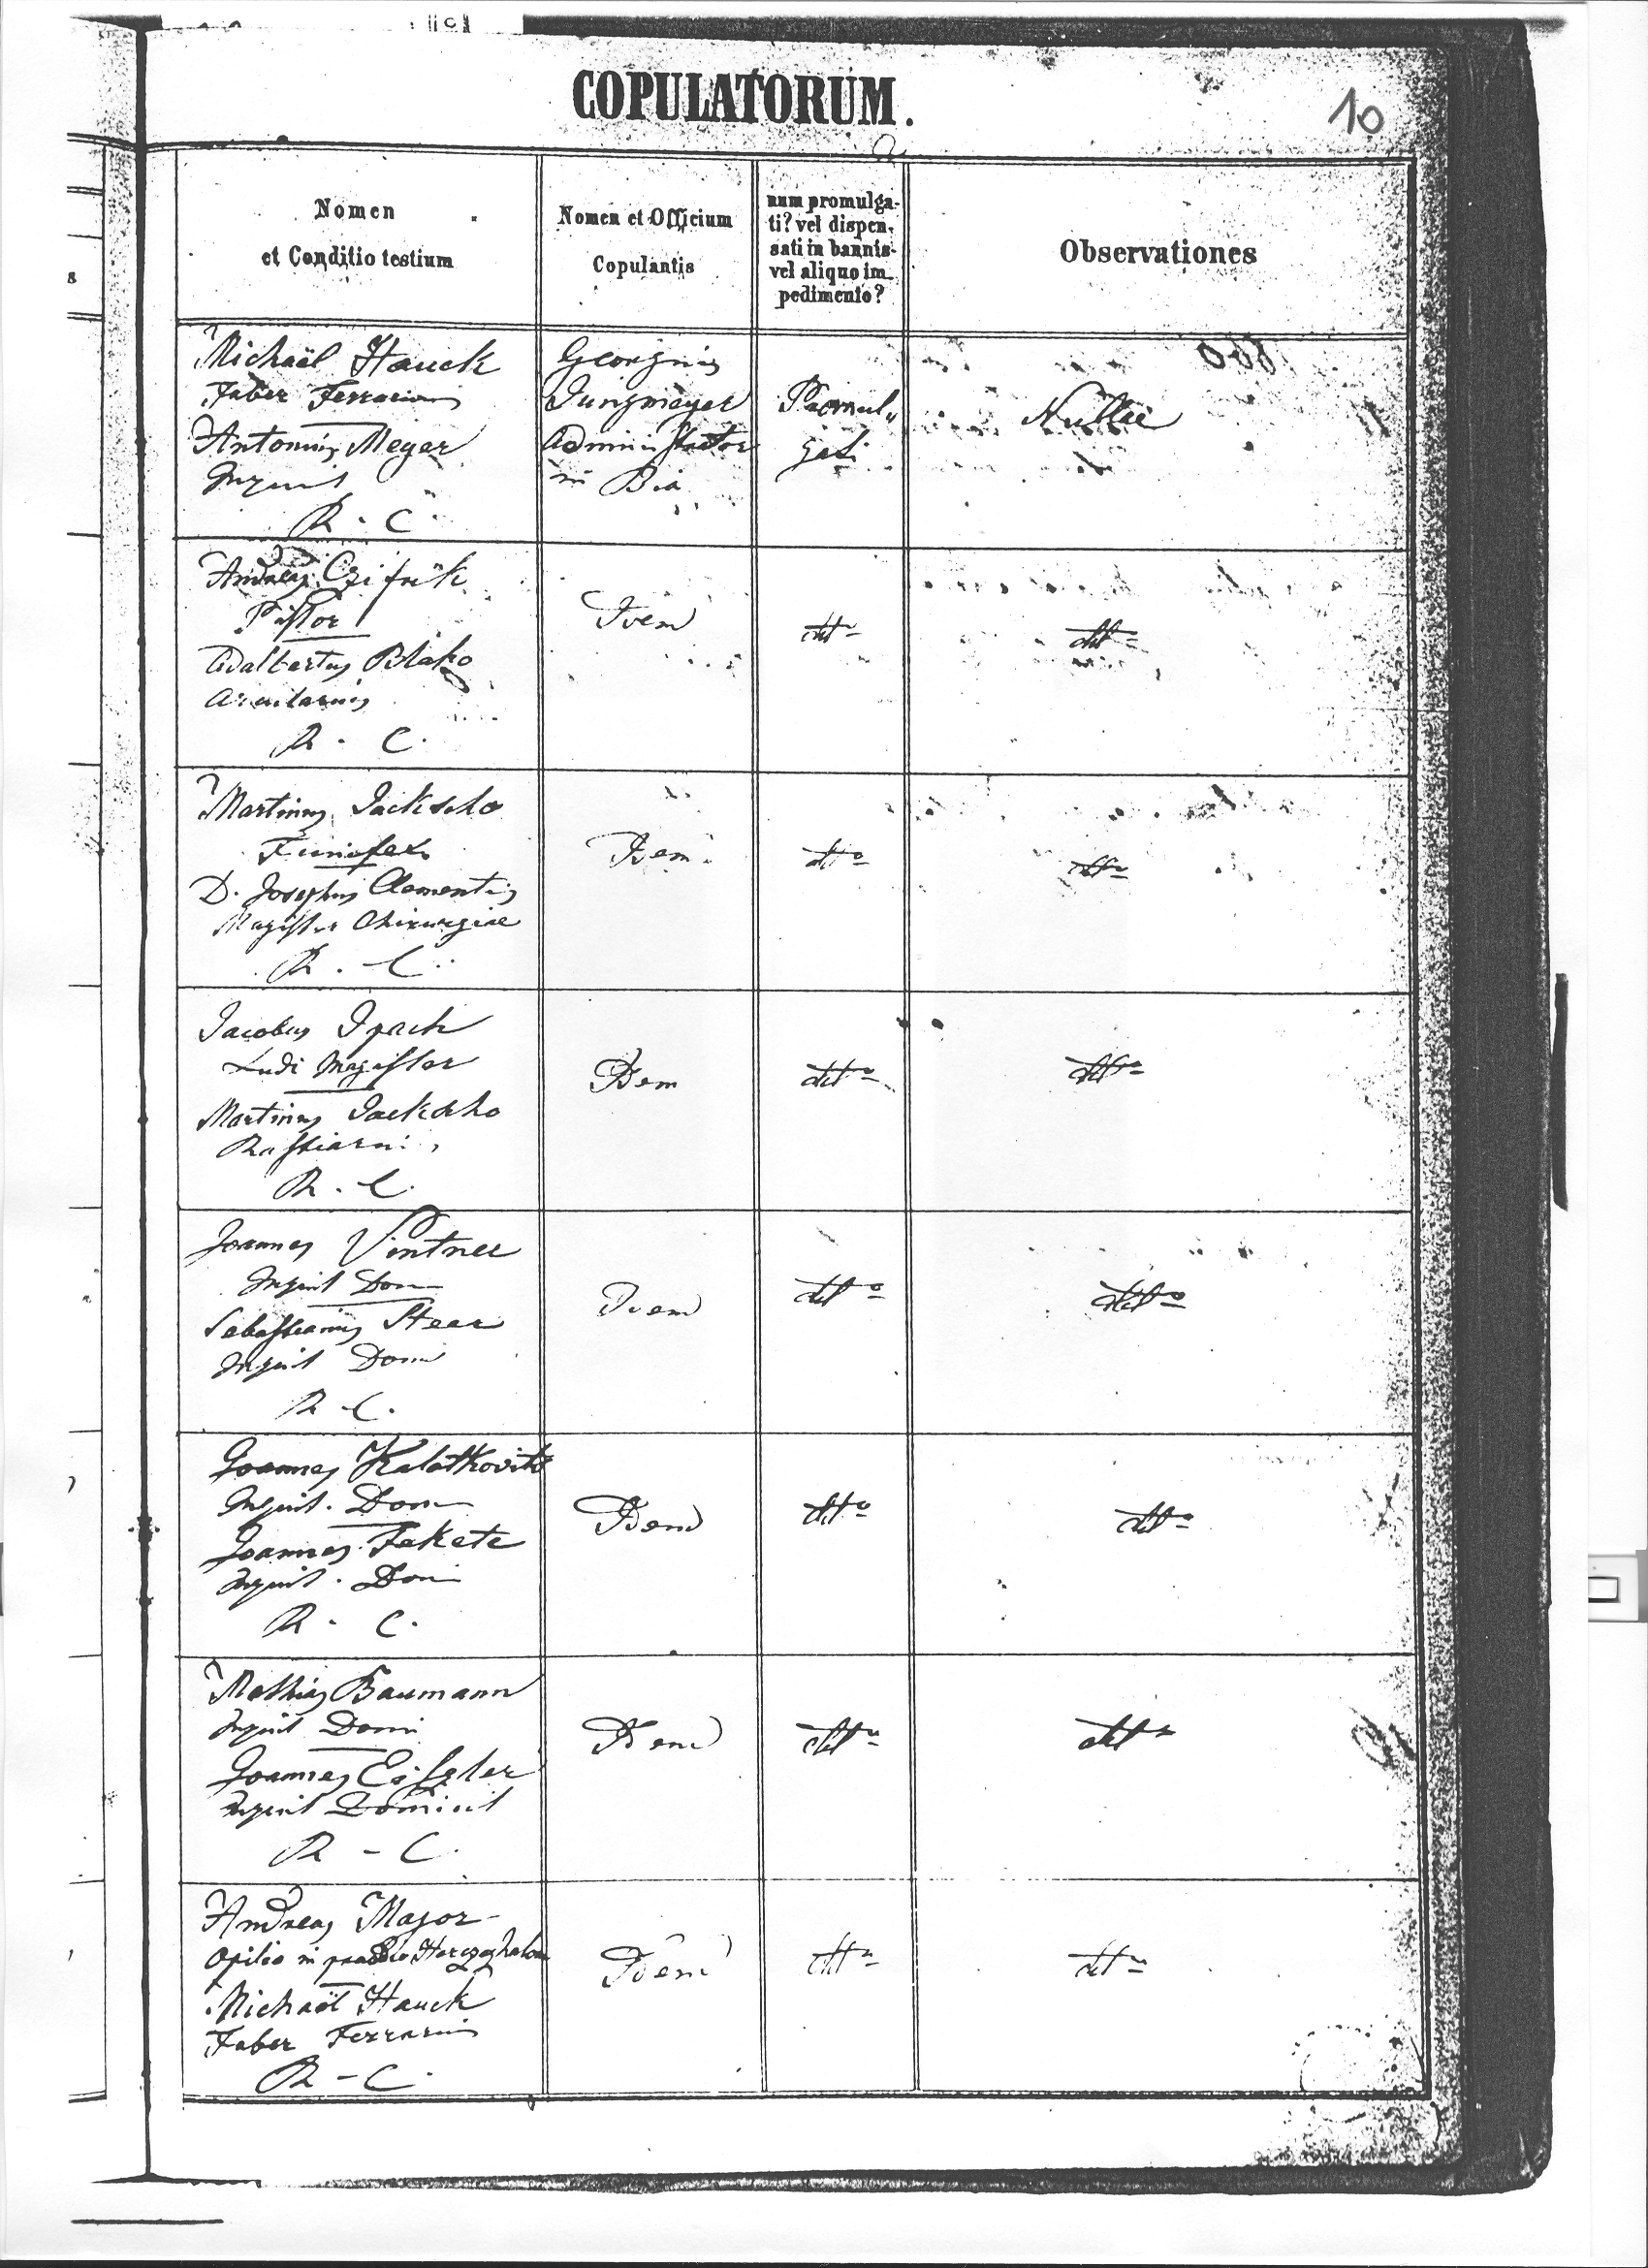 COPULATORUM.
10
Nomen
et Conditio testium
Nomen et Officium
Copulantis
num promulga-
ti? vel dispen-
sati in bannis
vel aliquo im-
pedimento?
Observationes
Michaël Hauck
Faber Ferrarius
Antonius Meyer
Inquil
R. C.
Georgius
Jungmayer
Administrator
in Bia
Promul„
gati
Nullae
Andreas Czifrik
Pistor
Adalbertus Blako
R. C.
Idem
detto
detto
Martinus Jackscho
Funifex
D. Josephus Clementis
Magister Chirurgiae
R. C.
Idem
detto
detto
Jacobus Ipach
Ludi Magister
Martinus Jackscho
R. C.
Idem
detto
detto
Joannes Vintner
Inquil Dom
Sebastianus
Inquil Dom
R C.
Idem
detto
detto
Joannes Kalatkovits
Inquil. Dom
Joannes Fekete
Inquil. Dom
R. C.
Idem
detto
detto
Mathias Baumann
Inquil Domi
Joannes
Inquil
R - C.
Idem
detto
detto
Andreas Major
Opilio in praedio Herczeghalom
Michaël Hauck
Faber Ferrarius
R - C.
Idem
detto
detto